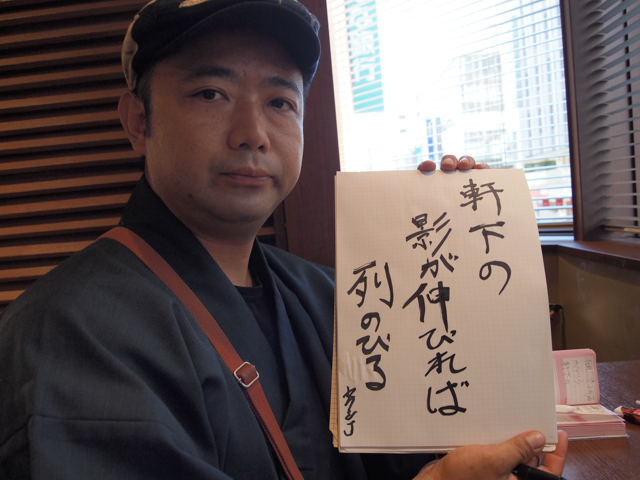 軒下の
影が伸びれば
列のびる